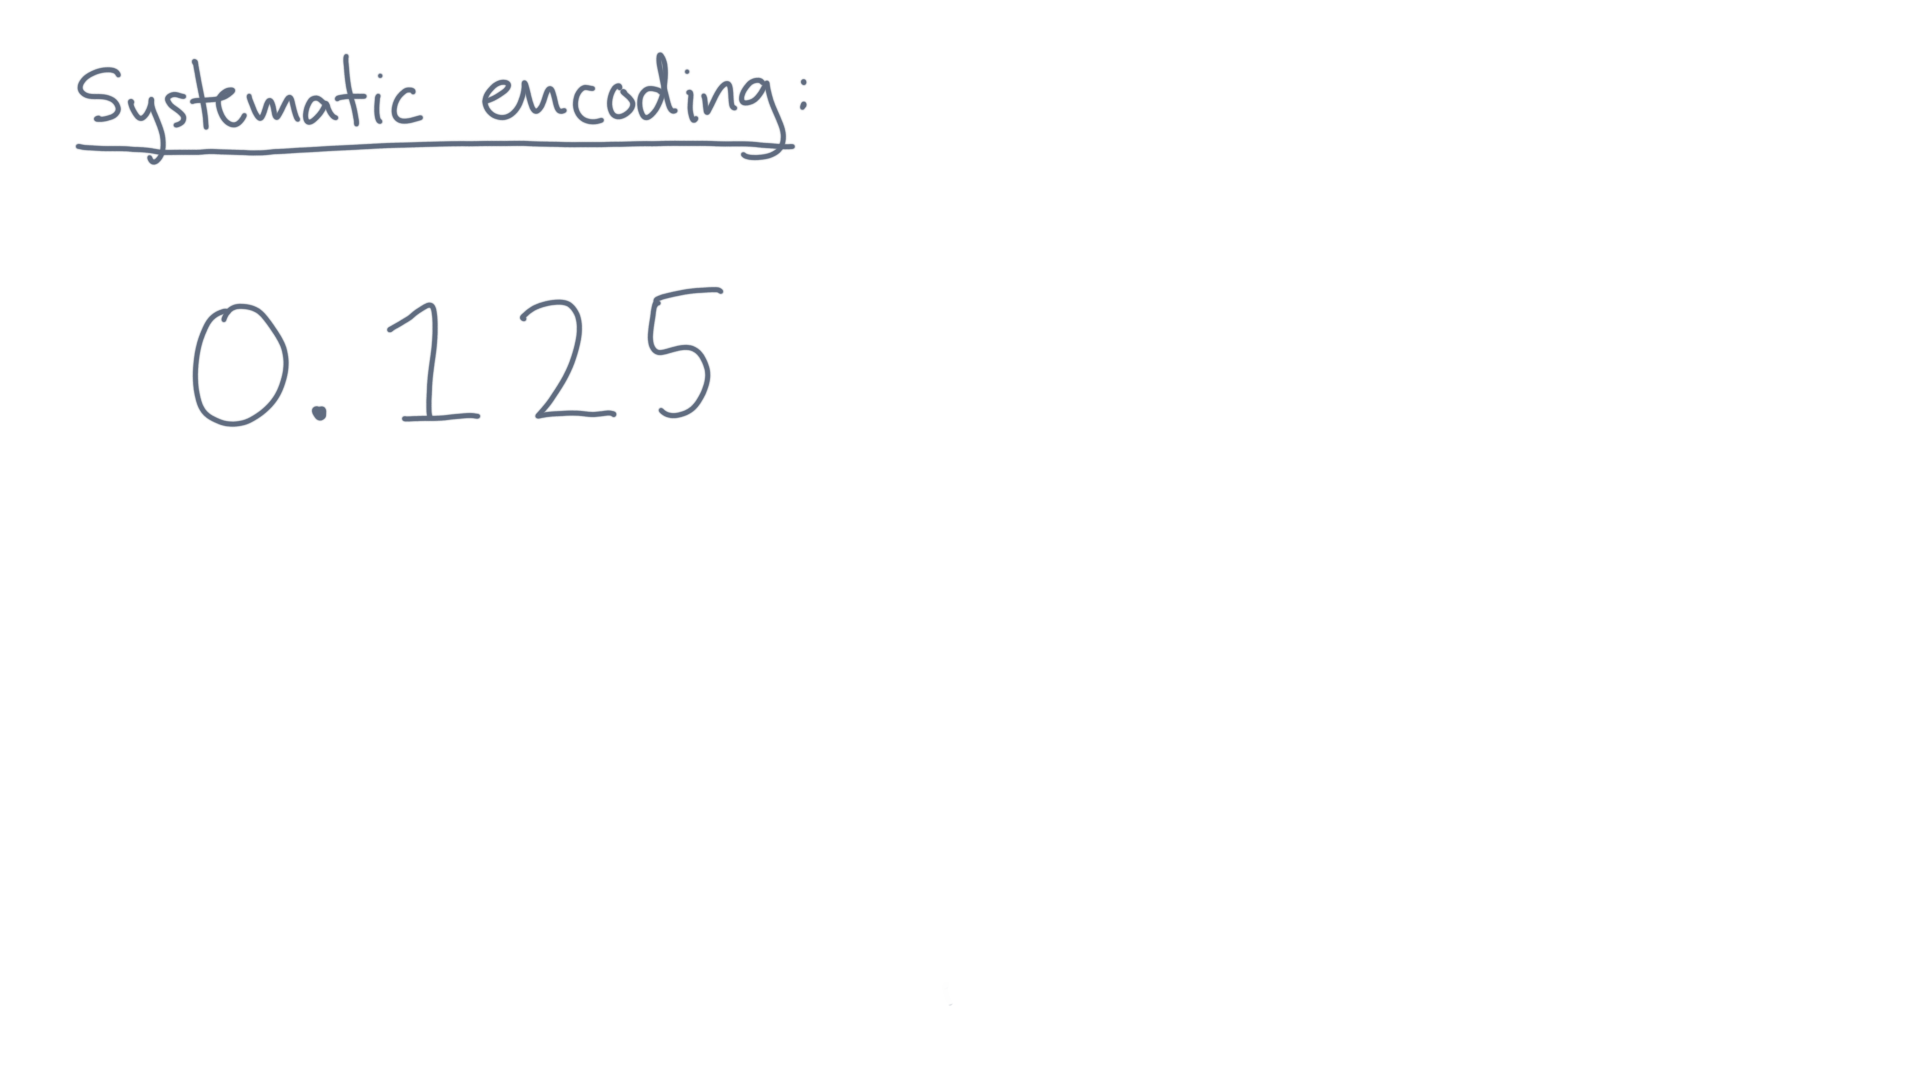 Systematic encoding:
0.125